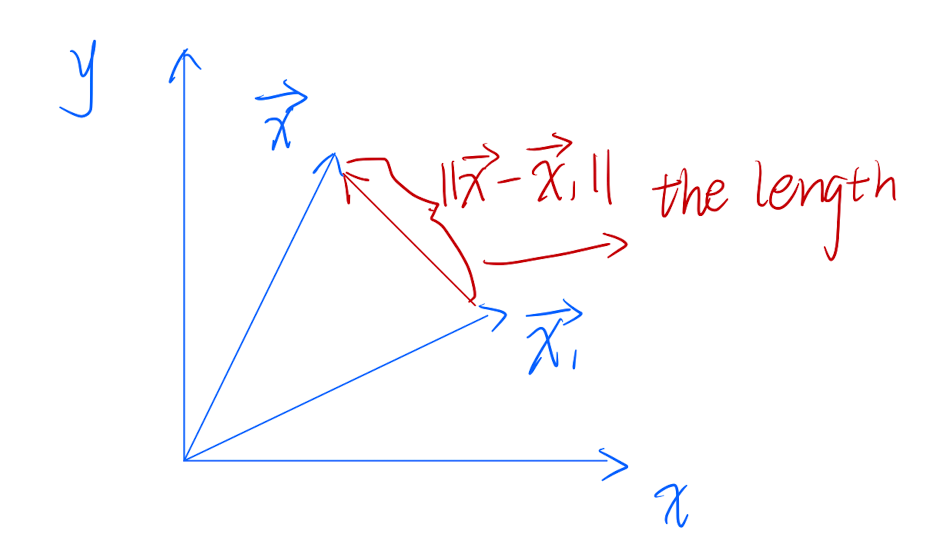 y
x⃗
||x⃗-x⃗₁|| the length
x⃗₁
x